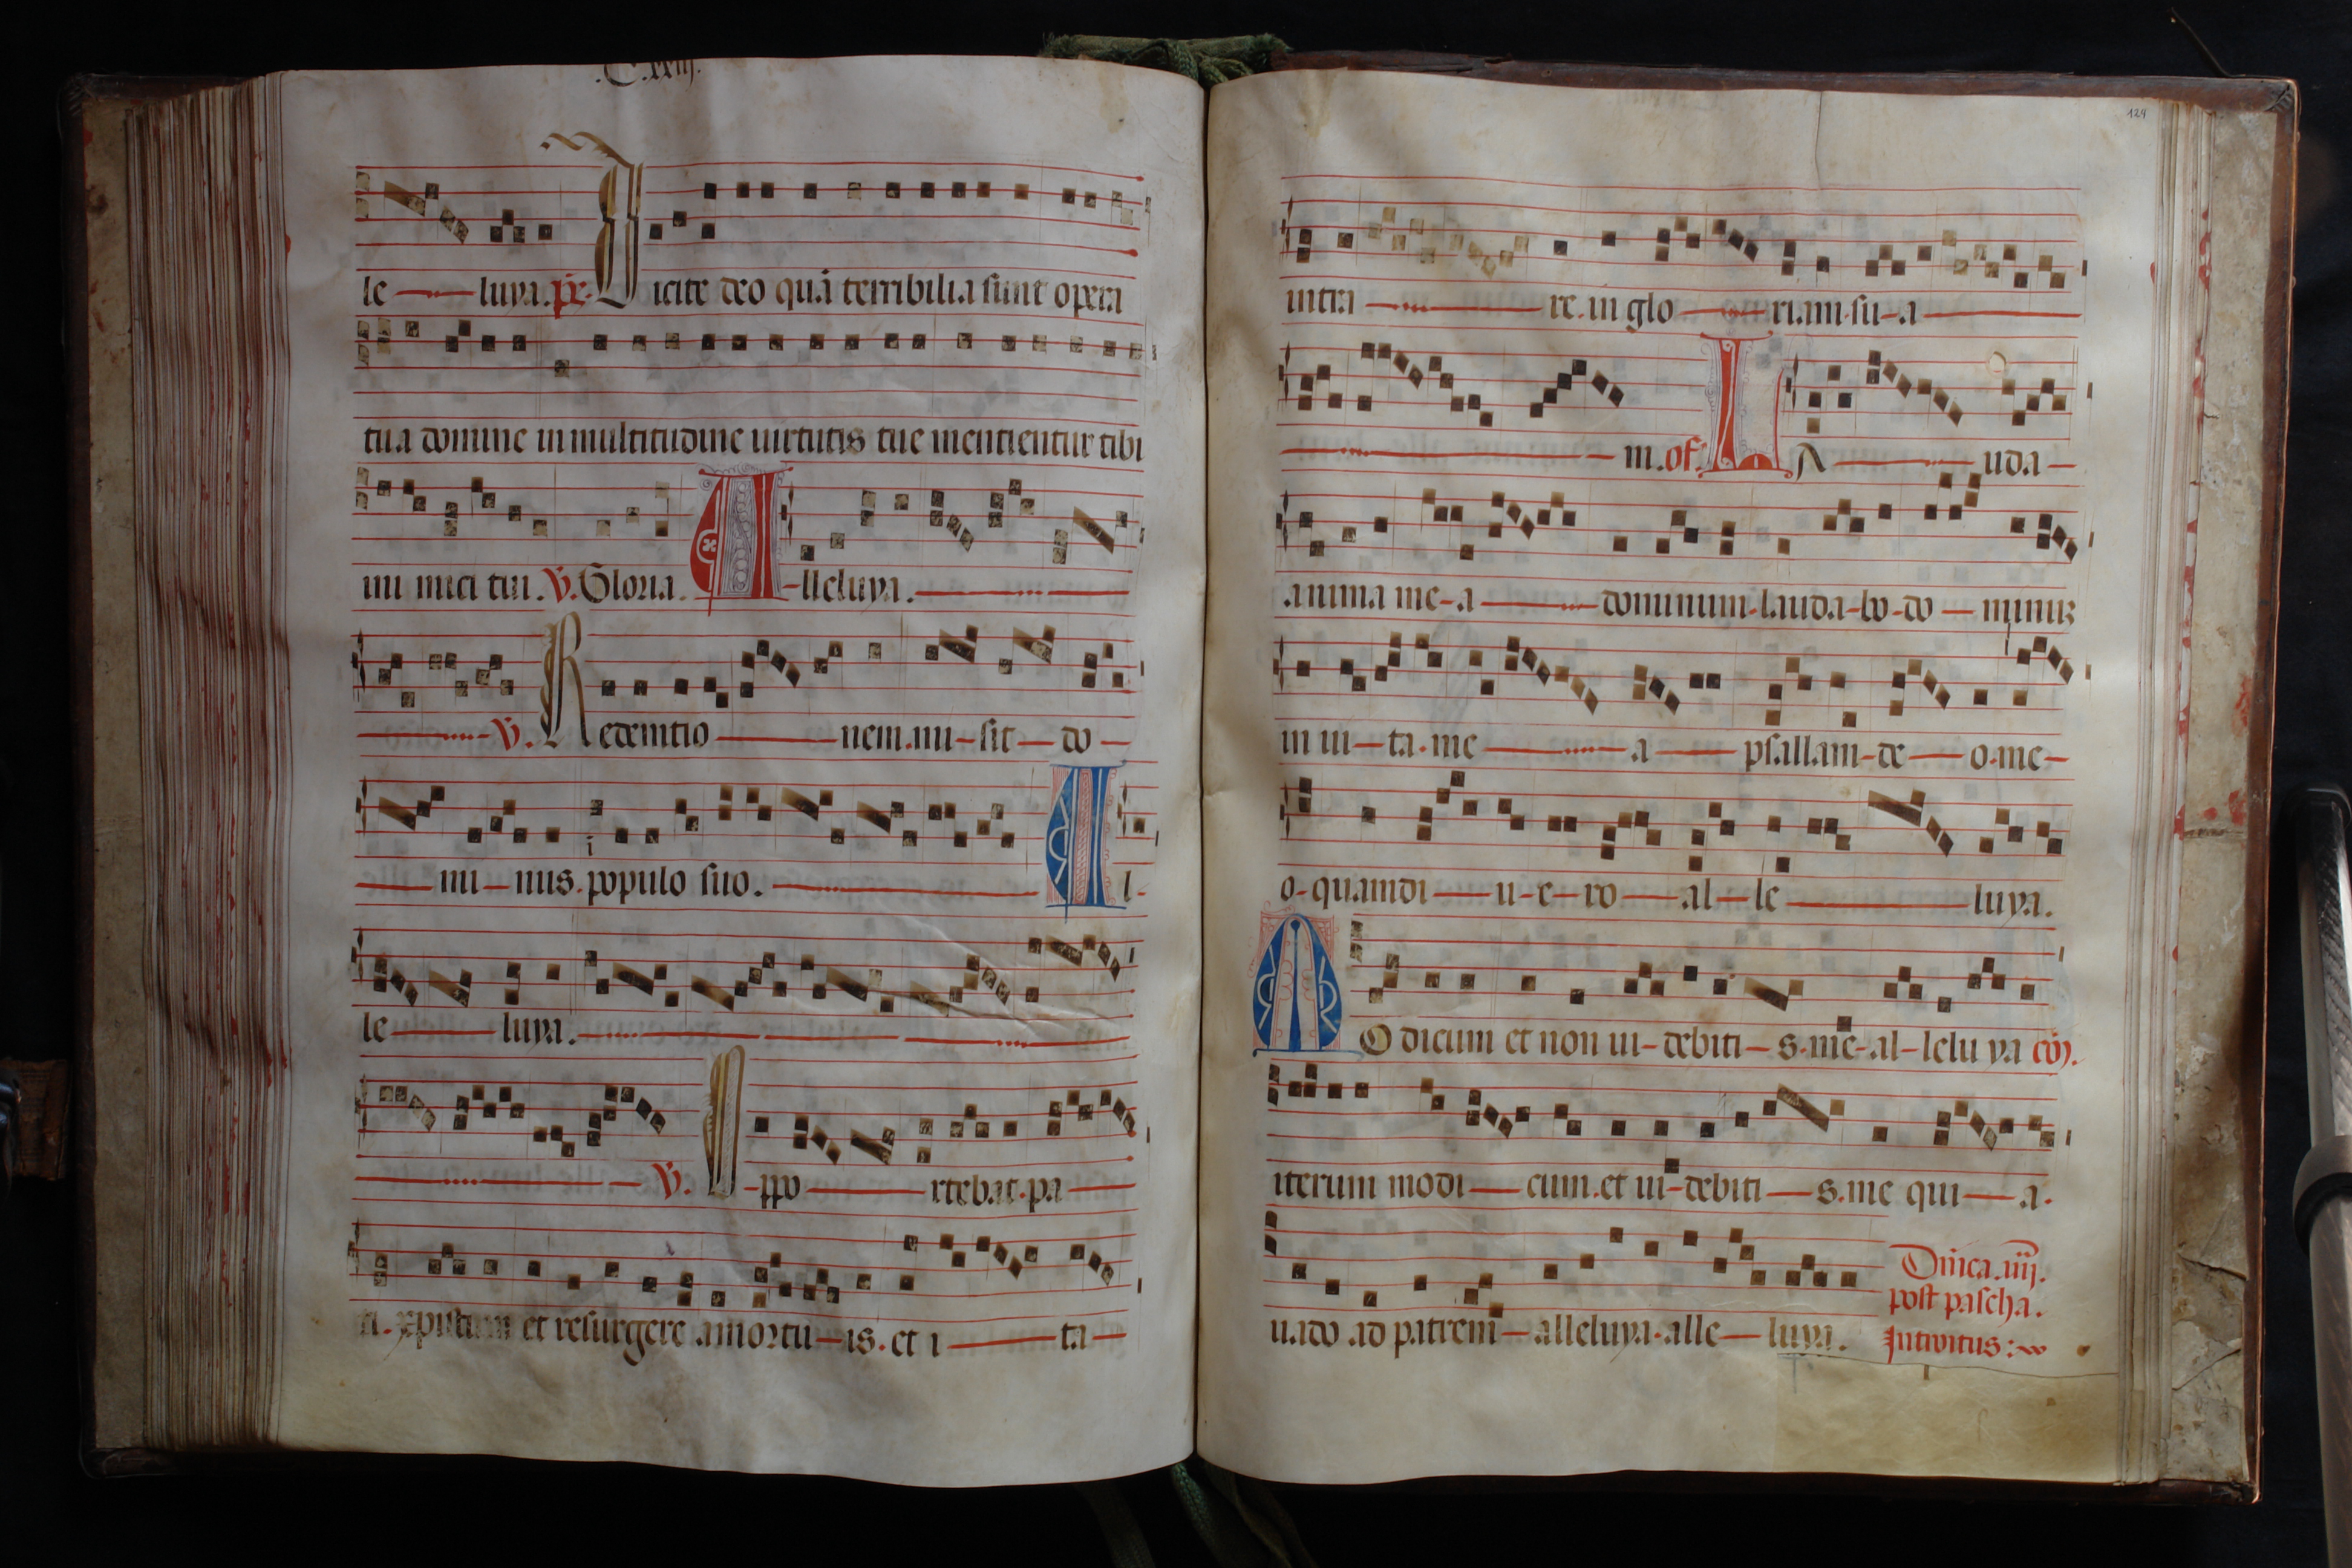 .C.xxiij.
le luya. ps. Dicite deo quã terribilia sunt opera
tua domine in multitudine uirtutis tue mentientur tibi
ini mici tui. V. Gloria. Alleluya.
V. Redemtio nem. mi-sit do
mi-nus. populo suo. Al-
le luya.
V. Oppo rtebat. pa
ti. xpistum et resurgere amortu-is. et i ta
124
intra re. in glo riam. su-a
m. of. LA uda
anima me-a dominum-lauda-bo-do minuz
in ui-ta. me a psallam-de o. me
o-quamdi u-e-ro al-le luya.
MOdicum et non ui-debiti-s. me-al-lelu ya cõ.
iterum modi cum. et ui-debiti s. me qui a.
uado ad patrem alleluya. alle luya.
Dñica. iiij.
post pascha.
Introitus: